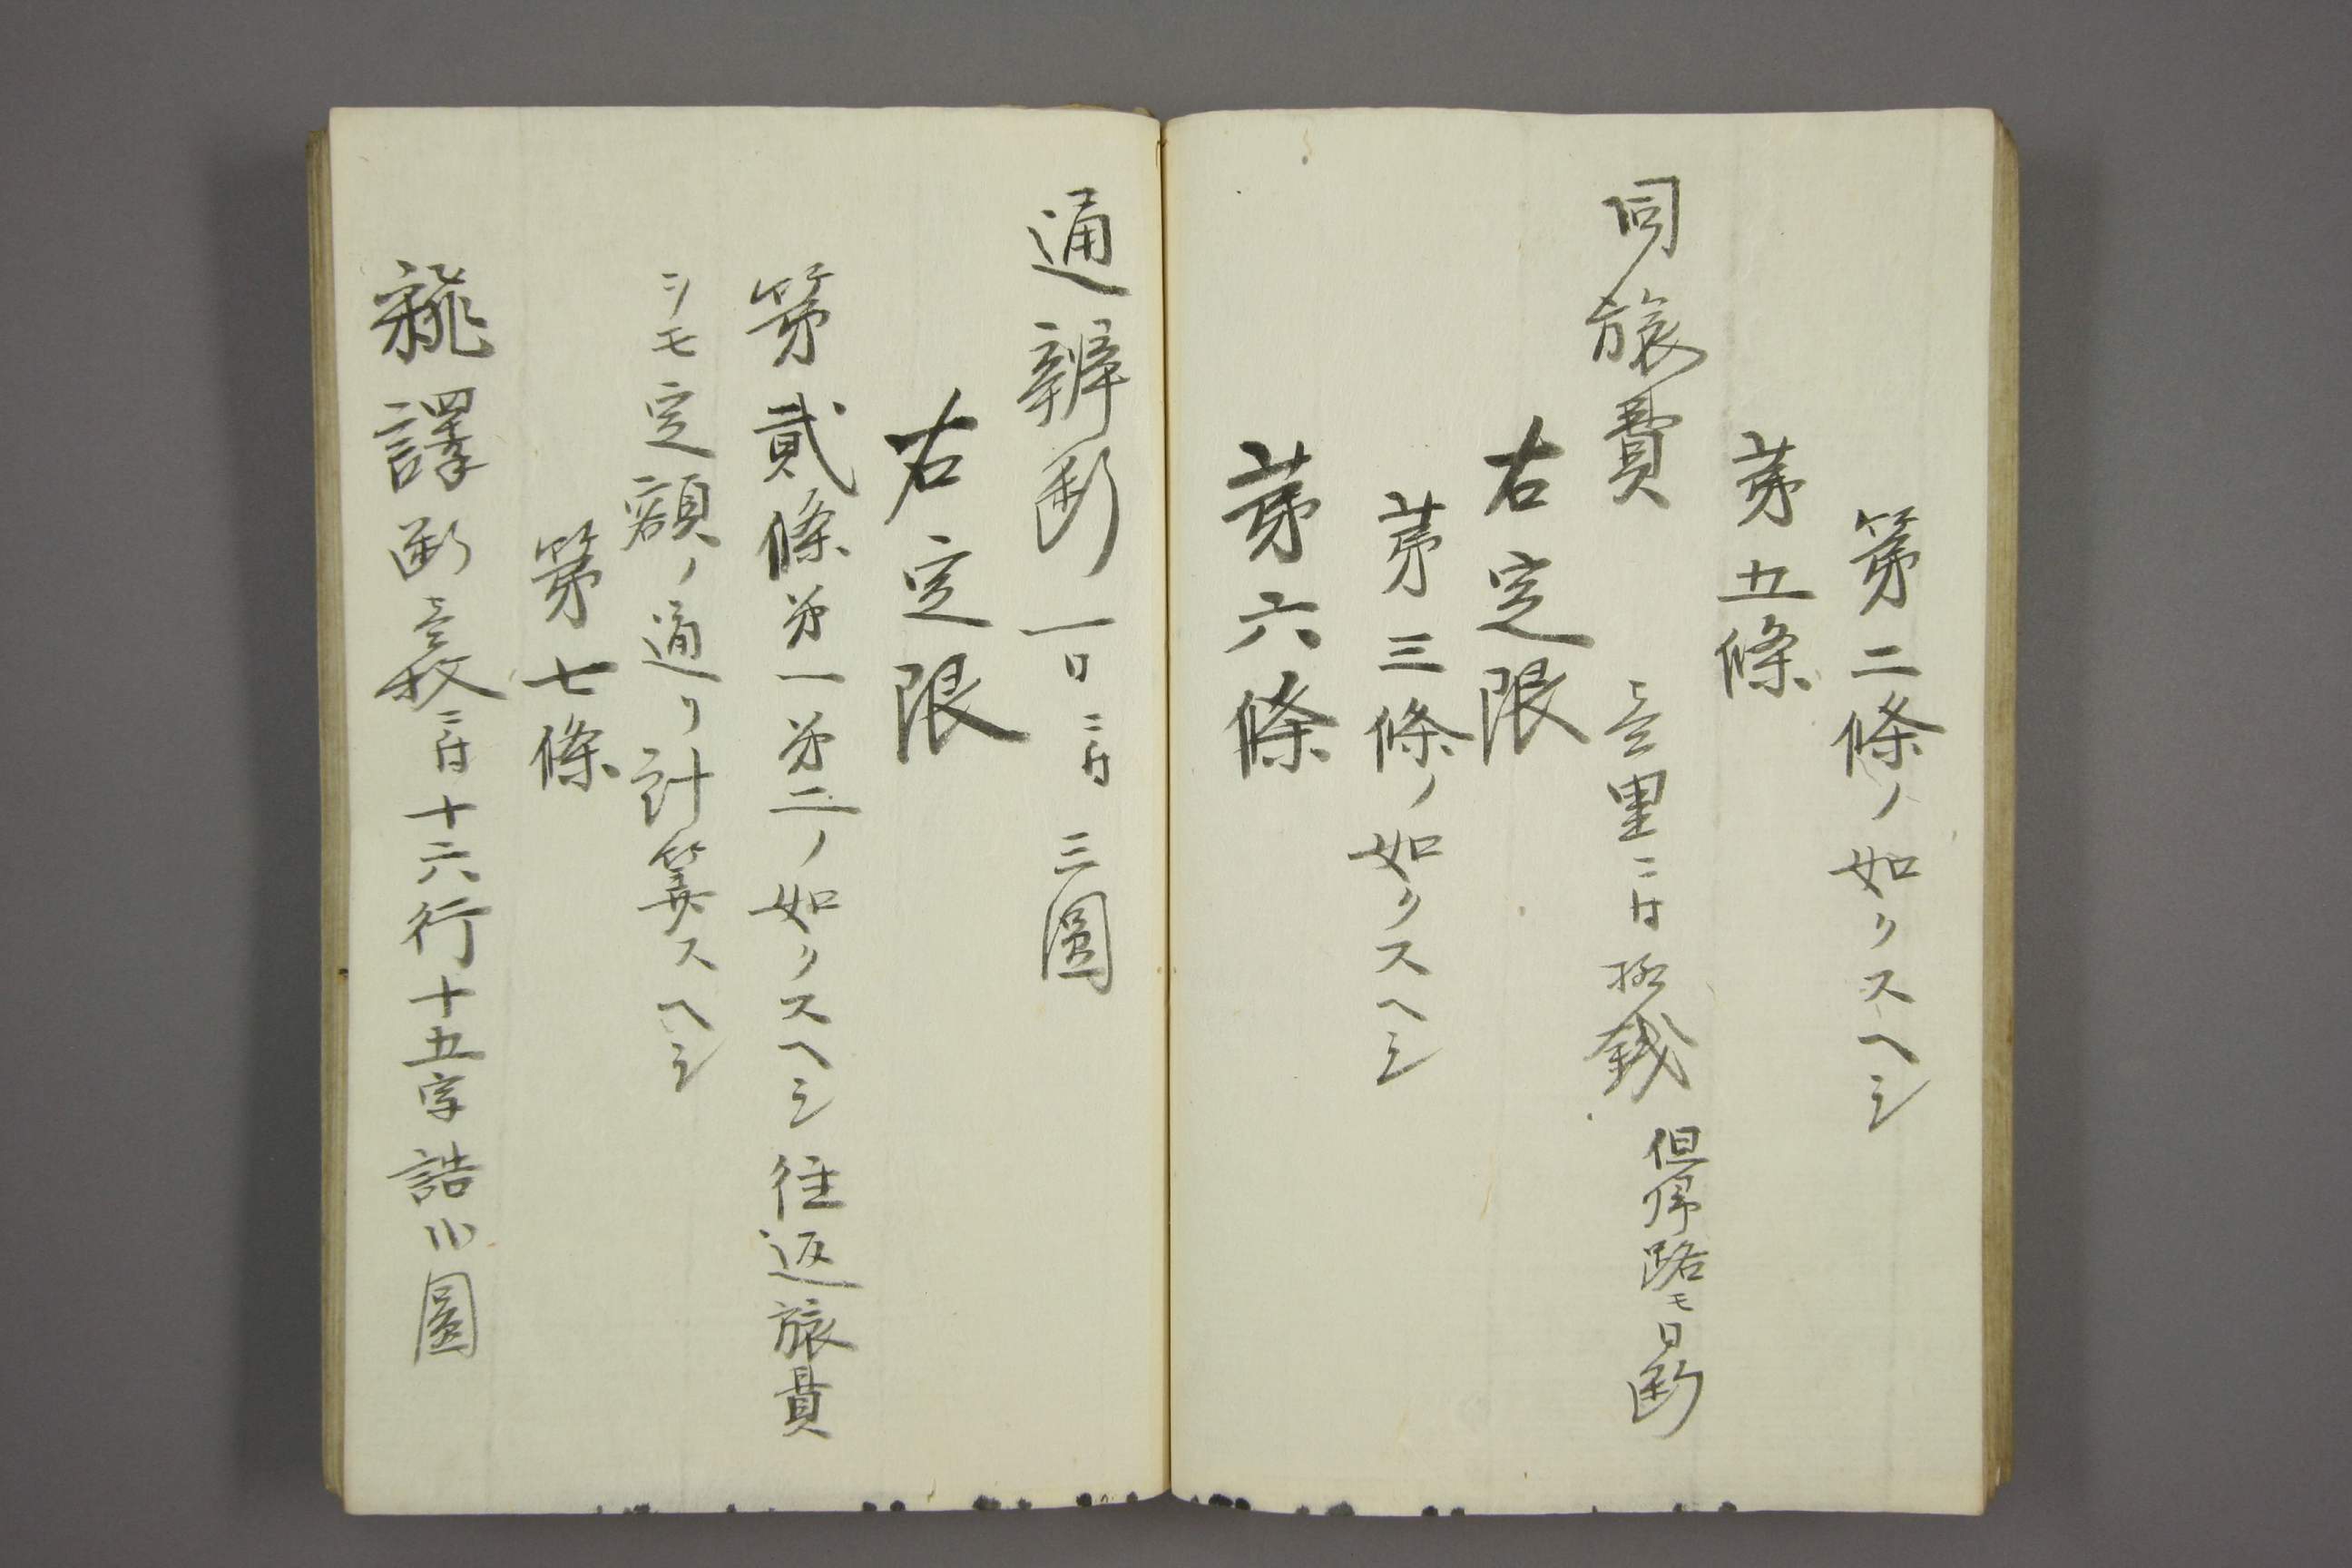 第二條ノ如クスヘシ
第五條
同旅費 壱里ニ付拾銭 但帰路モ日料
右定限
第三條ノ如クスヘシ
第六條
通辨料一日ニ付 三圓
右定限
第貳條第一第二ノ如クスヘシ往返旅費
シモ定額ノ通リ計筭スヘシ
第七條
飜譯料壱枚ニ付十六行十五字詰 圓